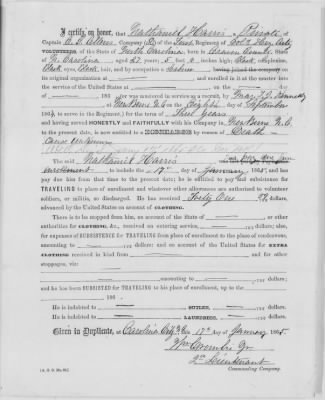 I certify, on honor, That Nathaniel Harris a Private
of Captain Company (B) of the First Regiment of Cold Hvy Arty
VOLUNTEERS, of the State of North Carolina, born in Craven County, State
of N. Carolina, aged 27 years; 5 feet 6 inches high; Black Complexion,
Black eyes, Black hair, and by occupation a having joined the company on
its original organization at and enrolled in it at the muster
into the service of the United States at on the day of
186 or was mustered in service as a recruit, by
at New Bern N.C. on the Eighth day of September
1864, to serve in the Regiment, for the term of Three years
and having served HONESTLY and FAITHFULLY with his Company in New Bern N.C.
to the present date, is now entitled to a DISCHARGE by reason of Death
cause
The said Nathaniel Harris
enrollment to include the 17th day of January 1865, and has
pay due him from that time to the present date; he is entitled to pay and subsistence for
TRAVELING to place of enrollment and whatever other allowances are authorized to volunteer
soldiers, or militia, so discharged. He has received Forty One dollars,
advanced by the United States on account of CLOTHING.
There is to be stopped from him, on account of the State of or
other authorities for CLOTHING, &c., received on entering service, dollars; also,
for expenses of SUBSISTENCE for TRAVELING from place of enrollment to the place of rendezvous,
amounting to dollars; and on account of the United States for EXTRA
CLOTHING received in kind from and for other
stoppages, viz:
amounting to dollars;
and he has been SUBSISTED for TRAVELING to his place of enrollment, up to the
186
He is indebted to SUTLER, dollars;
He is indebted to LAUNDRESS, dollars.
Given in Duplicate, at Carolina City N.C. this 17th day of January 1865
2d Lieutenant
Commanding Company.
[A. G. O. No.